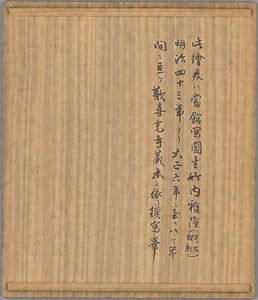 此繪巻ハ當館寫圖生竹内雅隆
明治四十三年より大正六年ニ至ル八ヶ年
間ニ亘り歡喜光寺蔵本ニ依り模寫畢